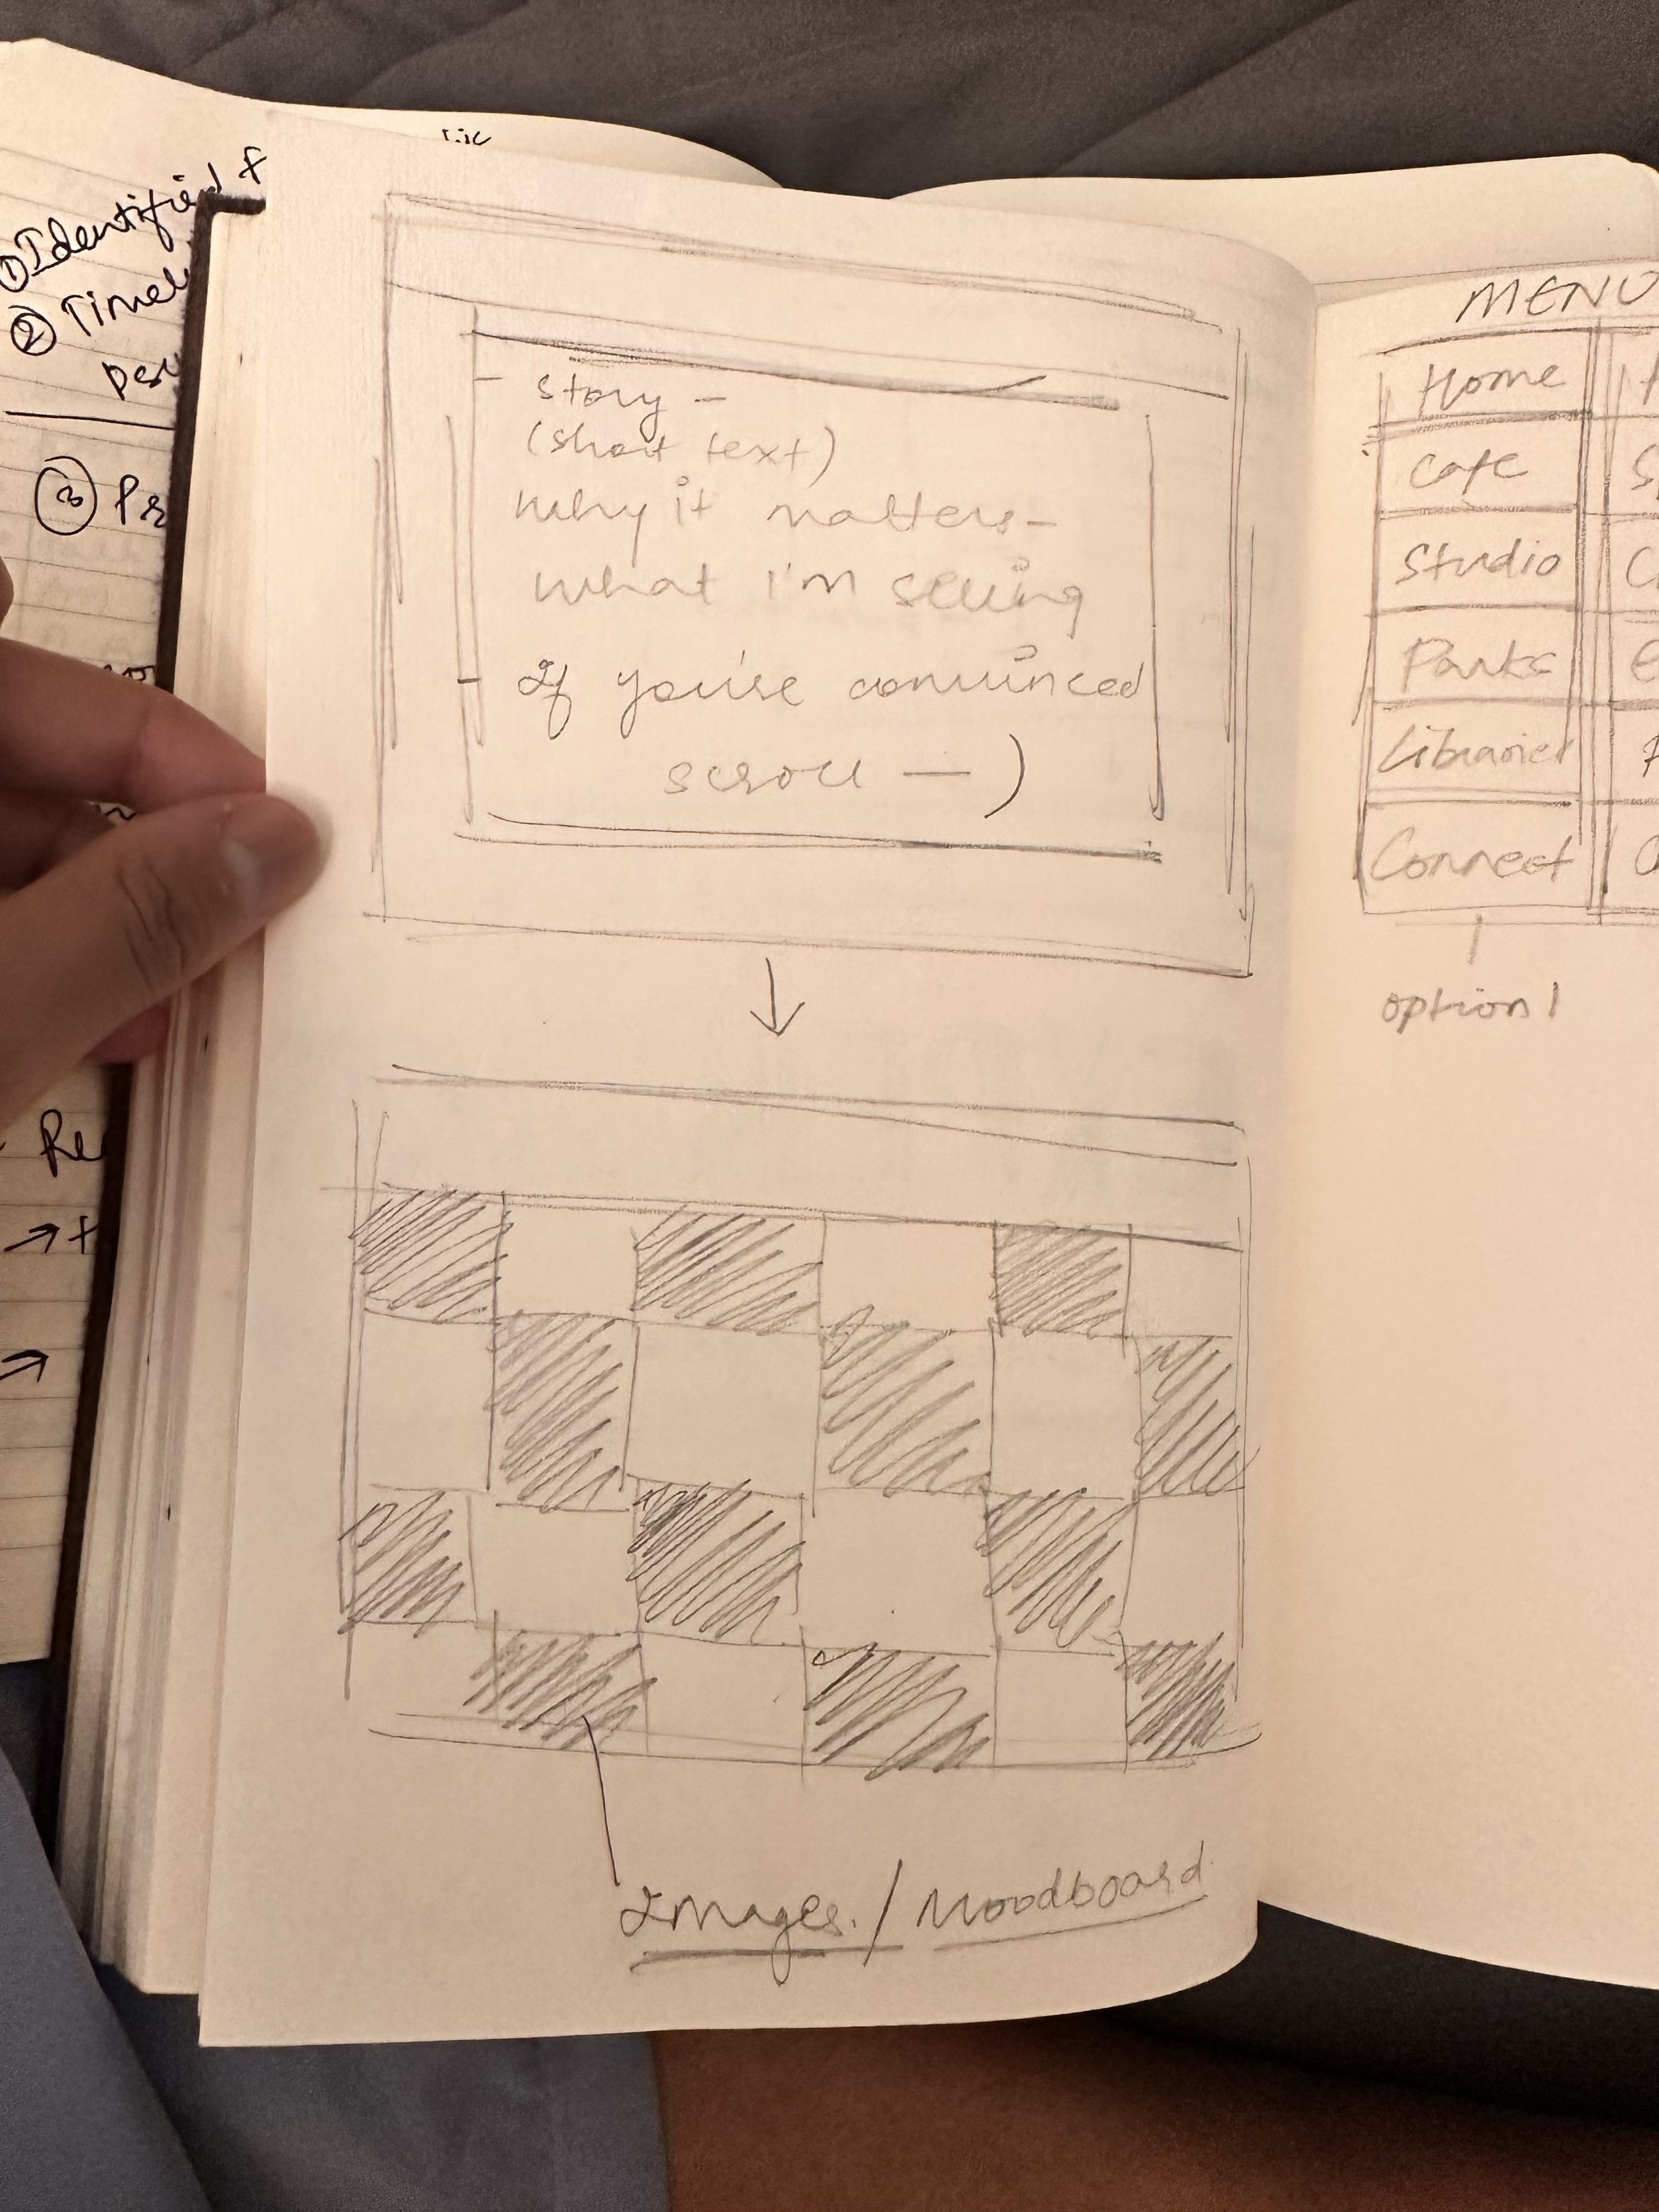 ① Identified f
② Timel
③ Pr
Re
→ t
→
- story -
(short text)
why it matters-
what I'm selling
- If you're convinced
scroll —)
↓
Images. / Moodboard
MENU
Home
Cafe
Studio
Parks
Libraries
Connect
option 1